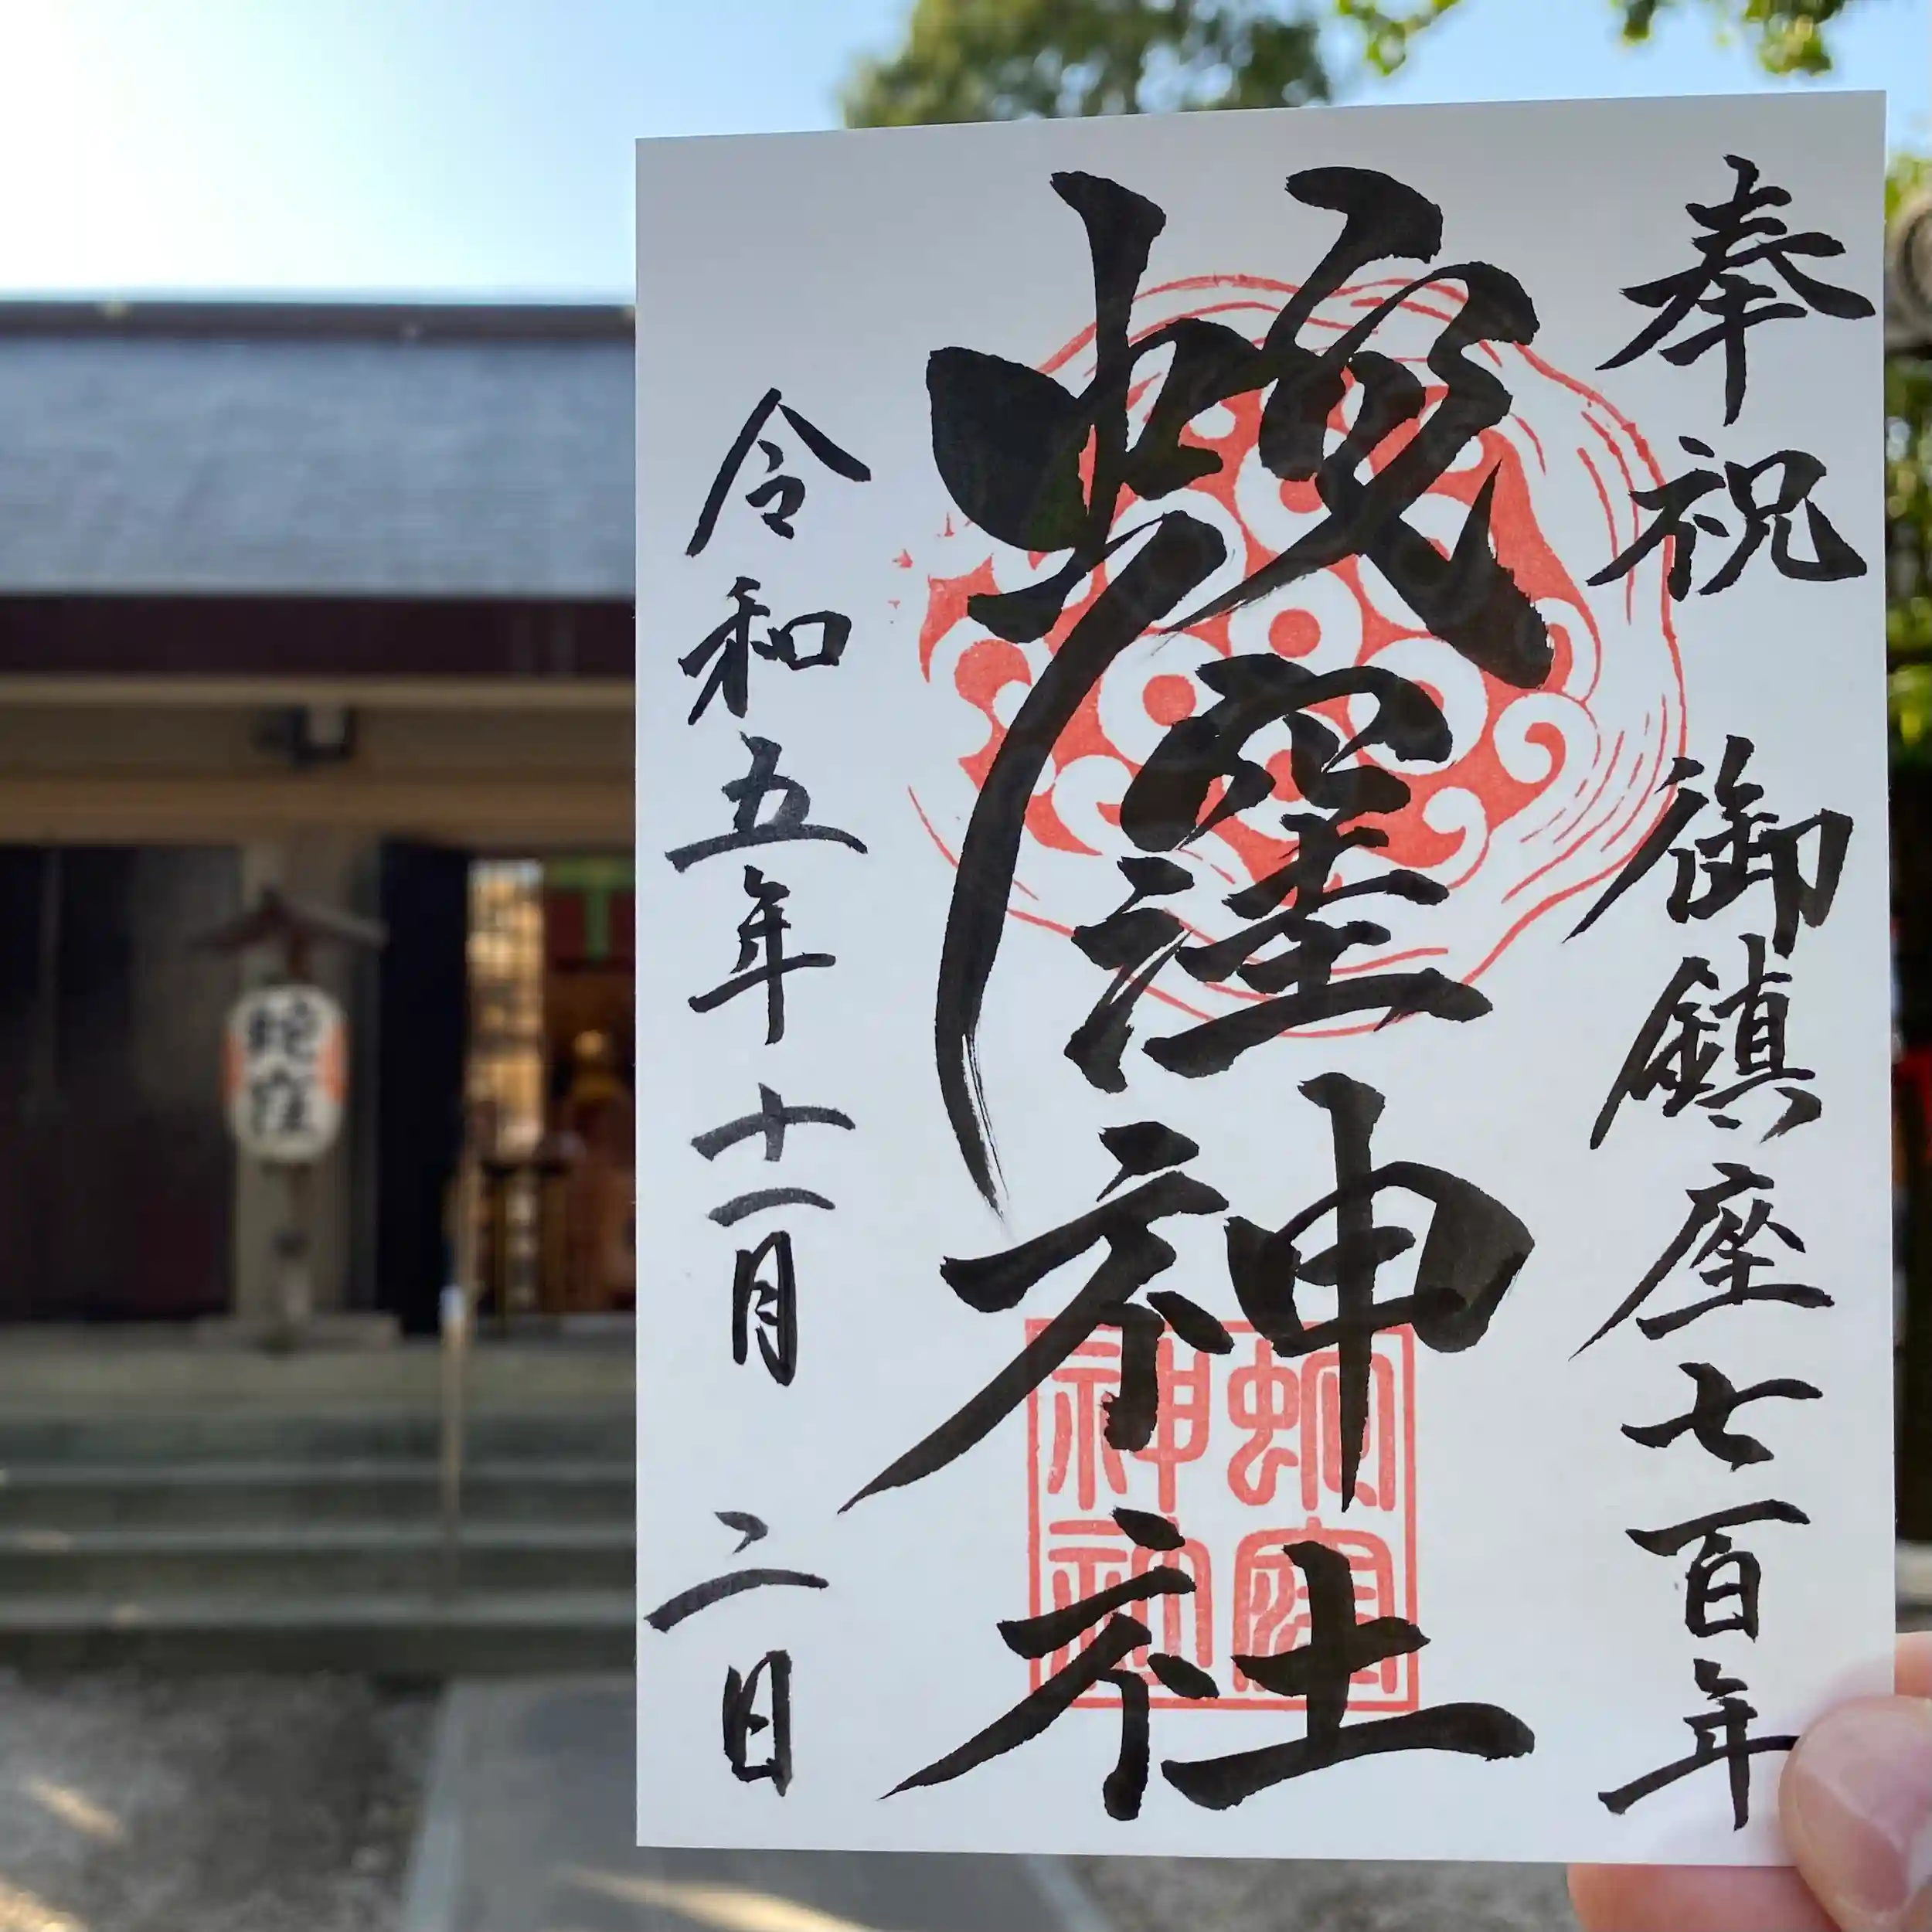 奉祝 御鎮座七百年
蛇窪神社
令和五年十一月二日
蛇窪
神社
蛇窪